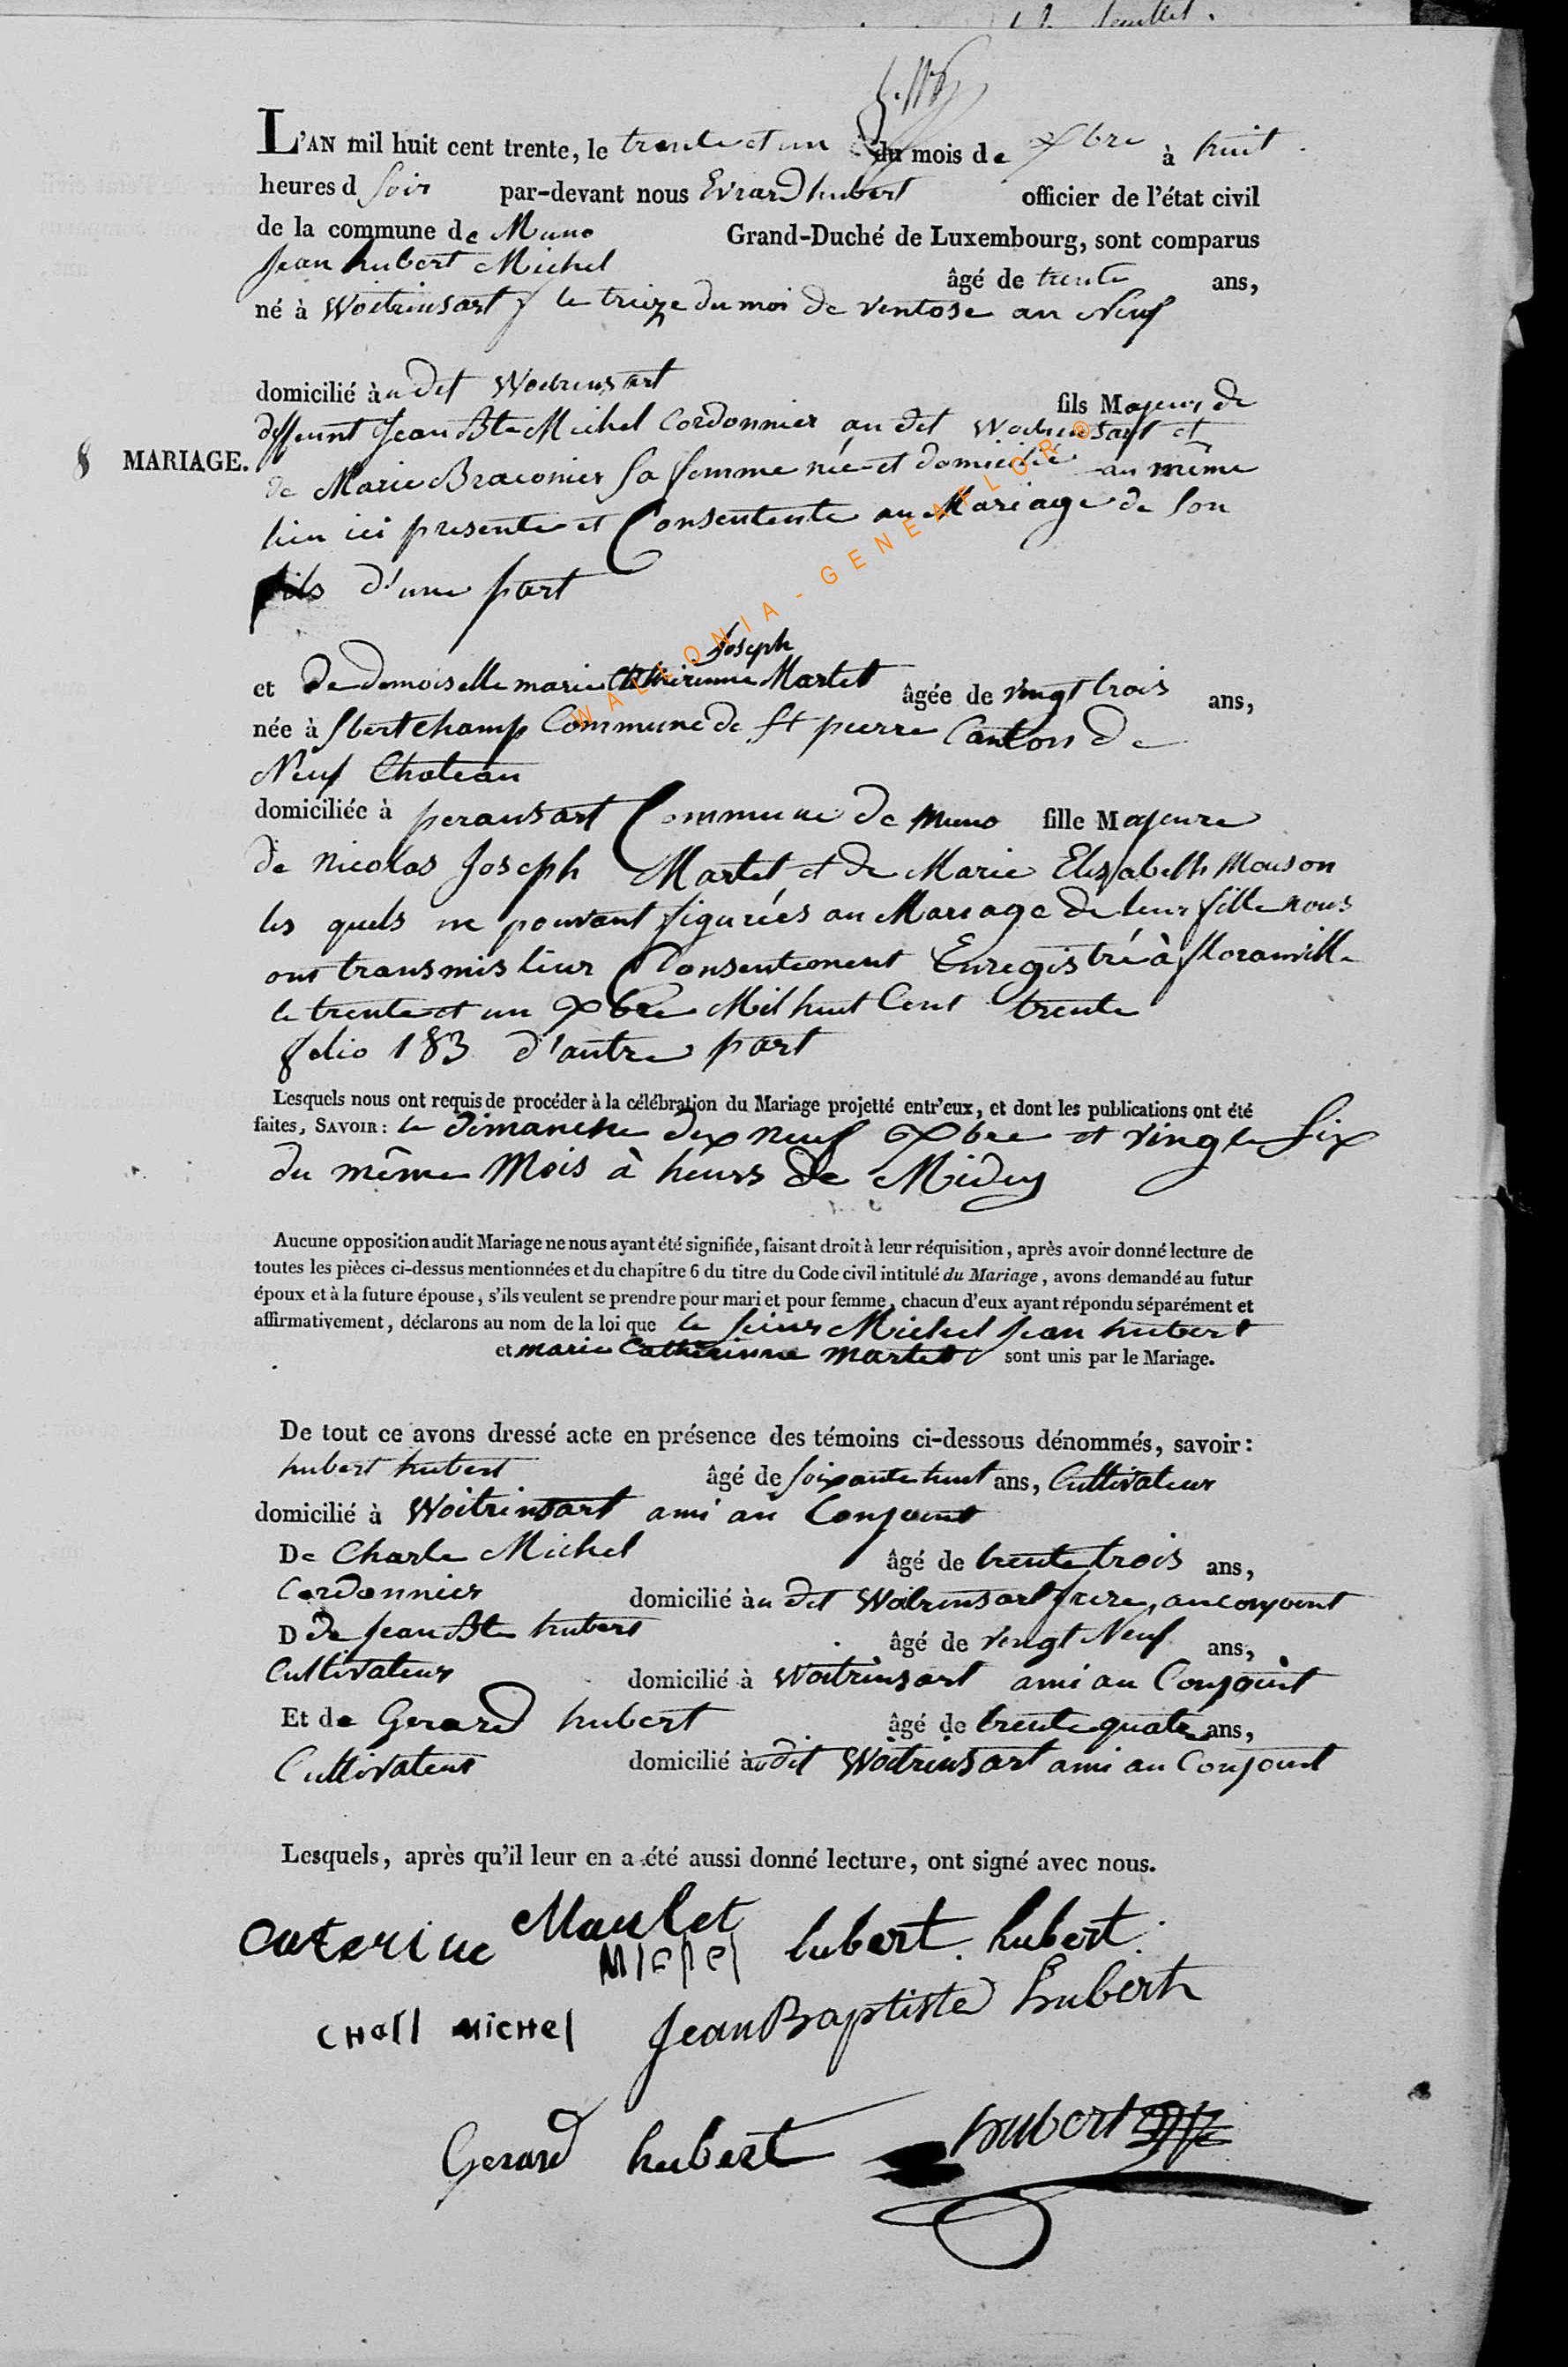 L'AN mil huit cent trente, le trente et un du mois de Xbre à huit
heures d Soir par-devant nous Evrard hubert officier de l'état civil
de la commune de Muno Grand-Duché de Luxembourg, sont comparus
Jean hubert Michel âgé de trente ans,
né à Woitrinsart le treize du moi de ventose an Neuf
domicilié àu dit Woitrinsart fils Majeur de
deffeunt Jean Bte Michel Cordonnier au dit Woitrinsart et
8 MARIAGE.
de Marie Braconier Sa femme née et domiciliée au même
lieu ici presente et Consentente au Mariage de Son
fils d'une part
Joseph
et De demoiselle marie Catherienne Martet âgée de vingt trois ans,
née à Sbertchamp Commune de St pierre Canton de
Neuf Chateau
domiciliée à perausart Commune de Muno fille Majeure
de nicolas Joseph Martet et de Marie Elisabeth Mouson
les quels ne pouvant figurées au Mariage de leur fille nous
ont transmis leur Consentement Enregistré à floranville
le trente et un Xbre Mil huit Cent trente
folio 183 d'autre part
Lesquels nous ont requis de procéder à la célébration du Mariage projetté entr'eux, et dont les publications ont été
faites, SAVOIR: le Dimanche dix neuf Xbre et vingt Six
du même Mois à heurs de Midy
Aucune opposition audit Mariage ne nous ayant été signifiée, faisant droit à leur réquisition, après avoir donné lecture de
toutes les pièces ci-dessus mentionnées et du chapitre 6 du titre du Code civil intitulé du Mariage, avons demandé au futur
époux et à la future épouse, s'ils veulent se prendre pour mari et pour femme, chacun d'eux ayant répondu séparément et
affirmativement, déclarons au nom de la loi que le Sieur Michel Jean hubert
et marie Catherienne martet sont unis par le Mariage.
De tout ce avons dressé acte en présence des témoins ci-dessous dénommés, savoir:
hubert hubert âgé de soixante huit ans, Cultivateur
domicilié à Woitrinsart ami au Conjoint
De Charle Michel âgé de trente trois ans,
Cordonnier domicilié àu dit Woitrinsart frere au conjoint
D De Jean Bte hubert âgé de vingt Neuf ans,
Cultivateur domicilié à Woitrinsart ami au Conjoint
Et de Gerard hubert âgé de trente quatre ans,
Cultivateur domicilié àu dit Woitrinsart ami au Conjoint
Lesquels, après qu'il leur en a été aussi donné lecture, ont signé avec nous.
Caterine Maulet hubert hubert
CHarl MicHel Jean Baptiste hubert
Gerard hubert hubert
WALLONIA - GENEAFLOR ©